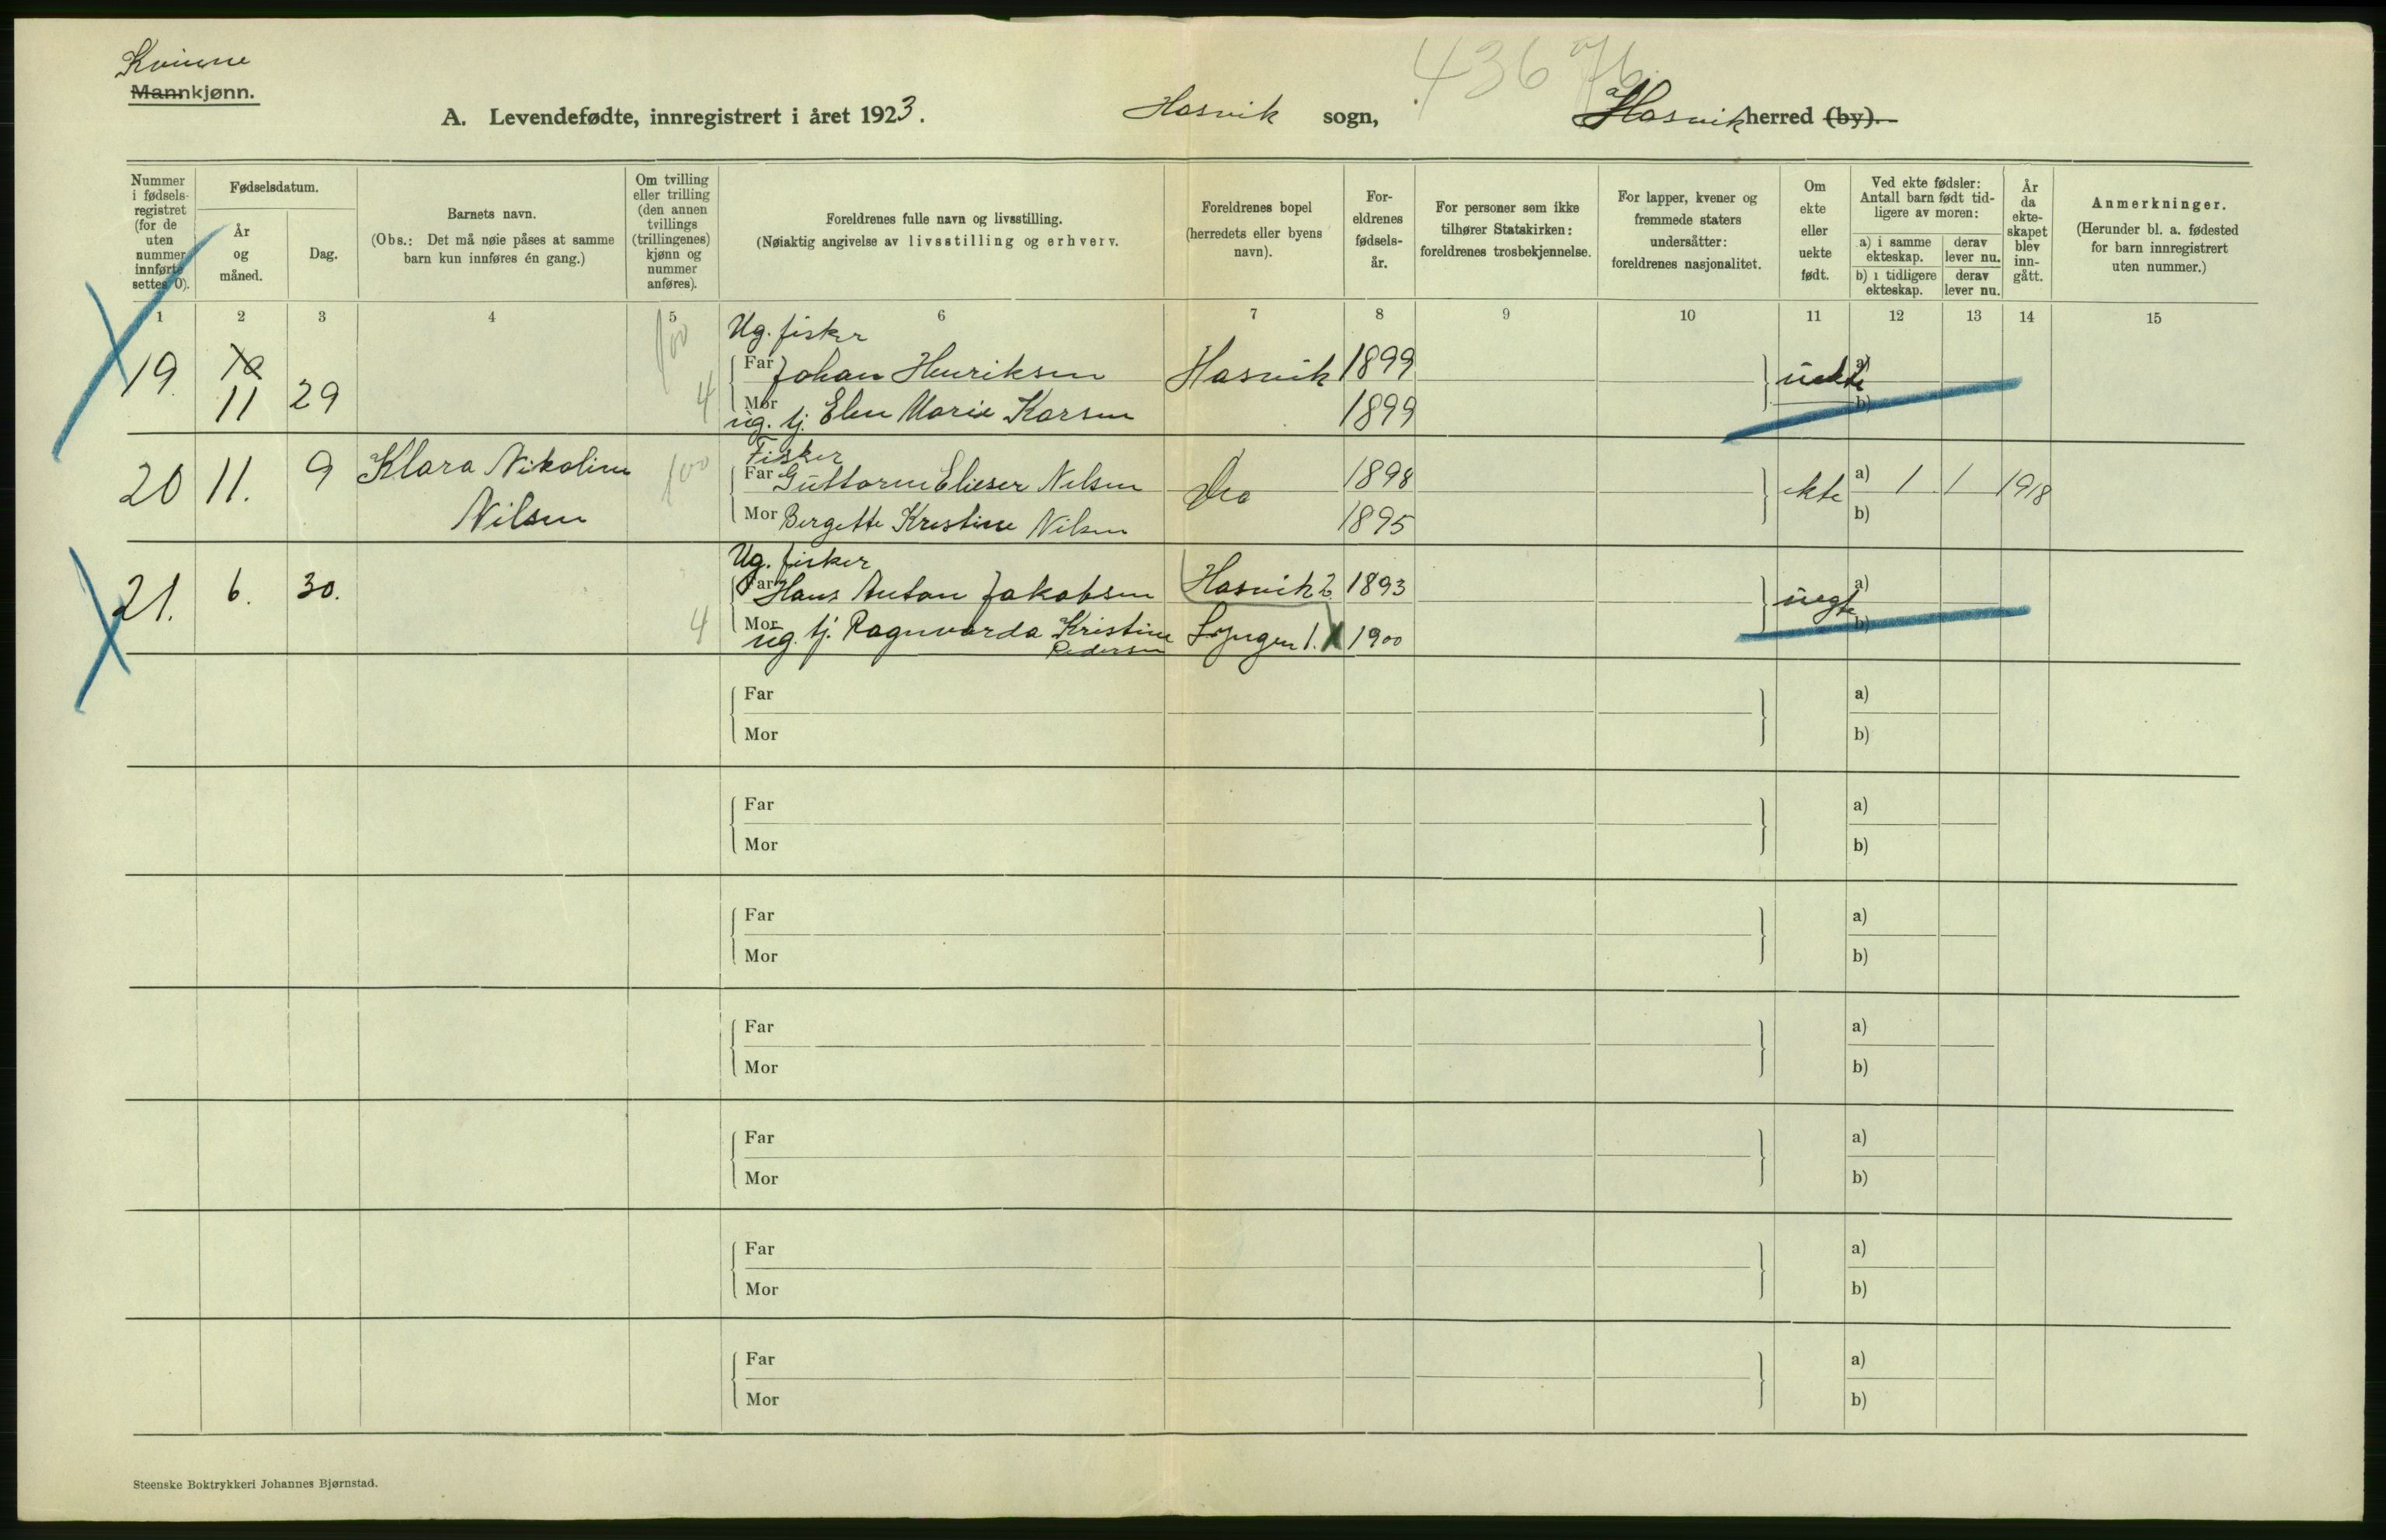 Kvinne
Mannkjønn.
A. Levendefødte, innregistrert i året 1923. Hasvik sogn, Hasvik herred (by).
43676
Nummer i fødselsregistret (for de uten nummer innførte settes 0).
Fødselsdatum.
År og måned.
Dag.
Barnets navn.
(Obs.: Det må nøie påses at samme barn kun innføres én gang.)
Om tvilling eller trilling (den annen tvillings (trillingenes) kjønn og nummer anføres).
Foreldrenes fulle navn og livsstilling.
(Nøiaktig angivelse av livsstilling og erhverv.
Foreldrenes bopel (herredets eller byens navn).
Foreldrenes fødselsår.
For personer som ikke tilhører Statskirken: foreldrenes trosbekjennelse.
For lapper, kvener og fremmede staters undersåtter: foreldrenes nasjonalitet.
Om ekte eller uekte født.
Ved ekte fødsler: Antall barn født tidligere av moren:
a) i samme ekteskap. derav lever nu.
b) i tidligere ekteskap. derav lever nu.
År da ekteskapet blev inngått.
Anmerkninger.
(Herunder bl. a. fødested for barn innregistrert uten nummer.)
1 2 3 4 5 6 7 8 9 10 11 12 13 14 15
Ug. fisker
19. 10 Far Johan Henriksen Hasvik 1899 uekte a)
11 29 100 4 Mor ug. tj. Elen Marie Karsen 1899 b)
Fisker
20 11. 9 Klara Nikoline 100 Far Guttorm Elieser Nilsen Do 1898 ekte a) 1 1 1918
Nilsen Mor Bergette Kristine Nilsen 1895 b)
Ug. fisker
21. 6. 30. Far Hans Anton Jakobsen Hasvik 2. 1893 uegte a)
4 Mor ug. tj. Ragnvarda Kristine Lyngen 1. X 1900 b)
Pedersen
Far a)
Mor b)
Far a)
Mor b)
Far a)
Mor b)
Far a)
Mor b)
Far a)
Mor b)
Far a)
Mor b)
Far a)
Mor b)
Steenske Boktrykkeri Johannes Bjørnstad.